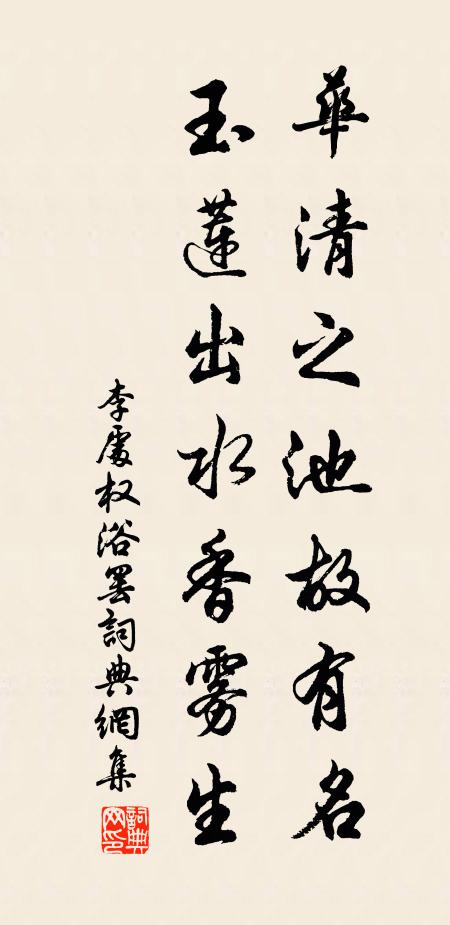 華清之池故有名
玉蓮出水香雾生
李處权浴罢詞典網集
詞典網印